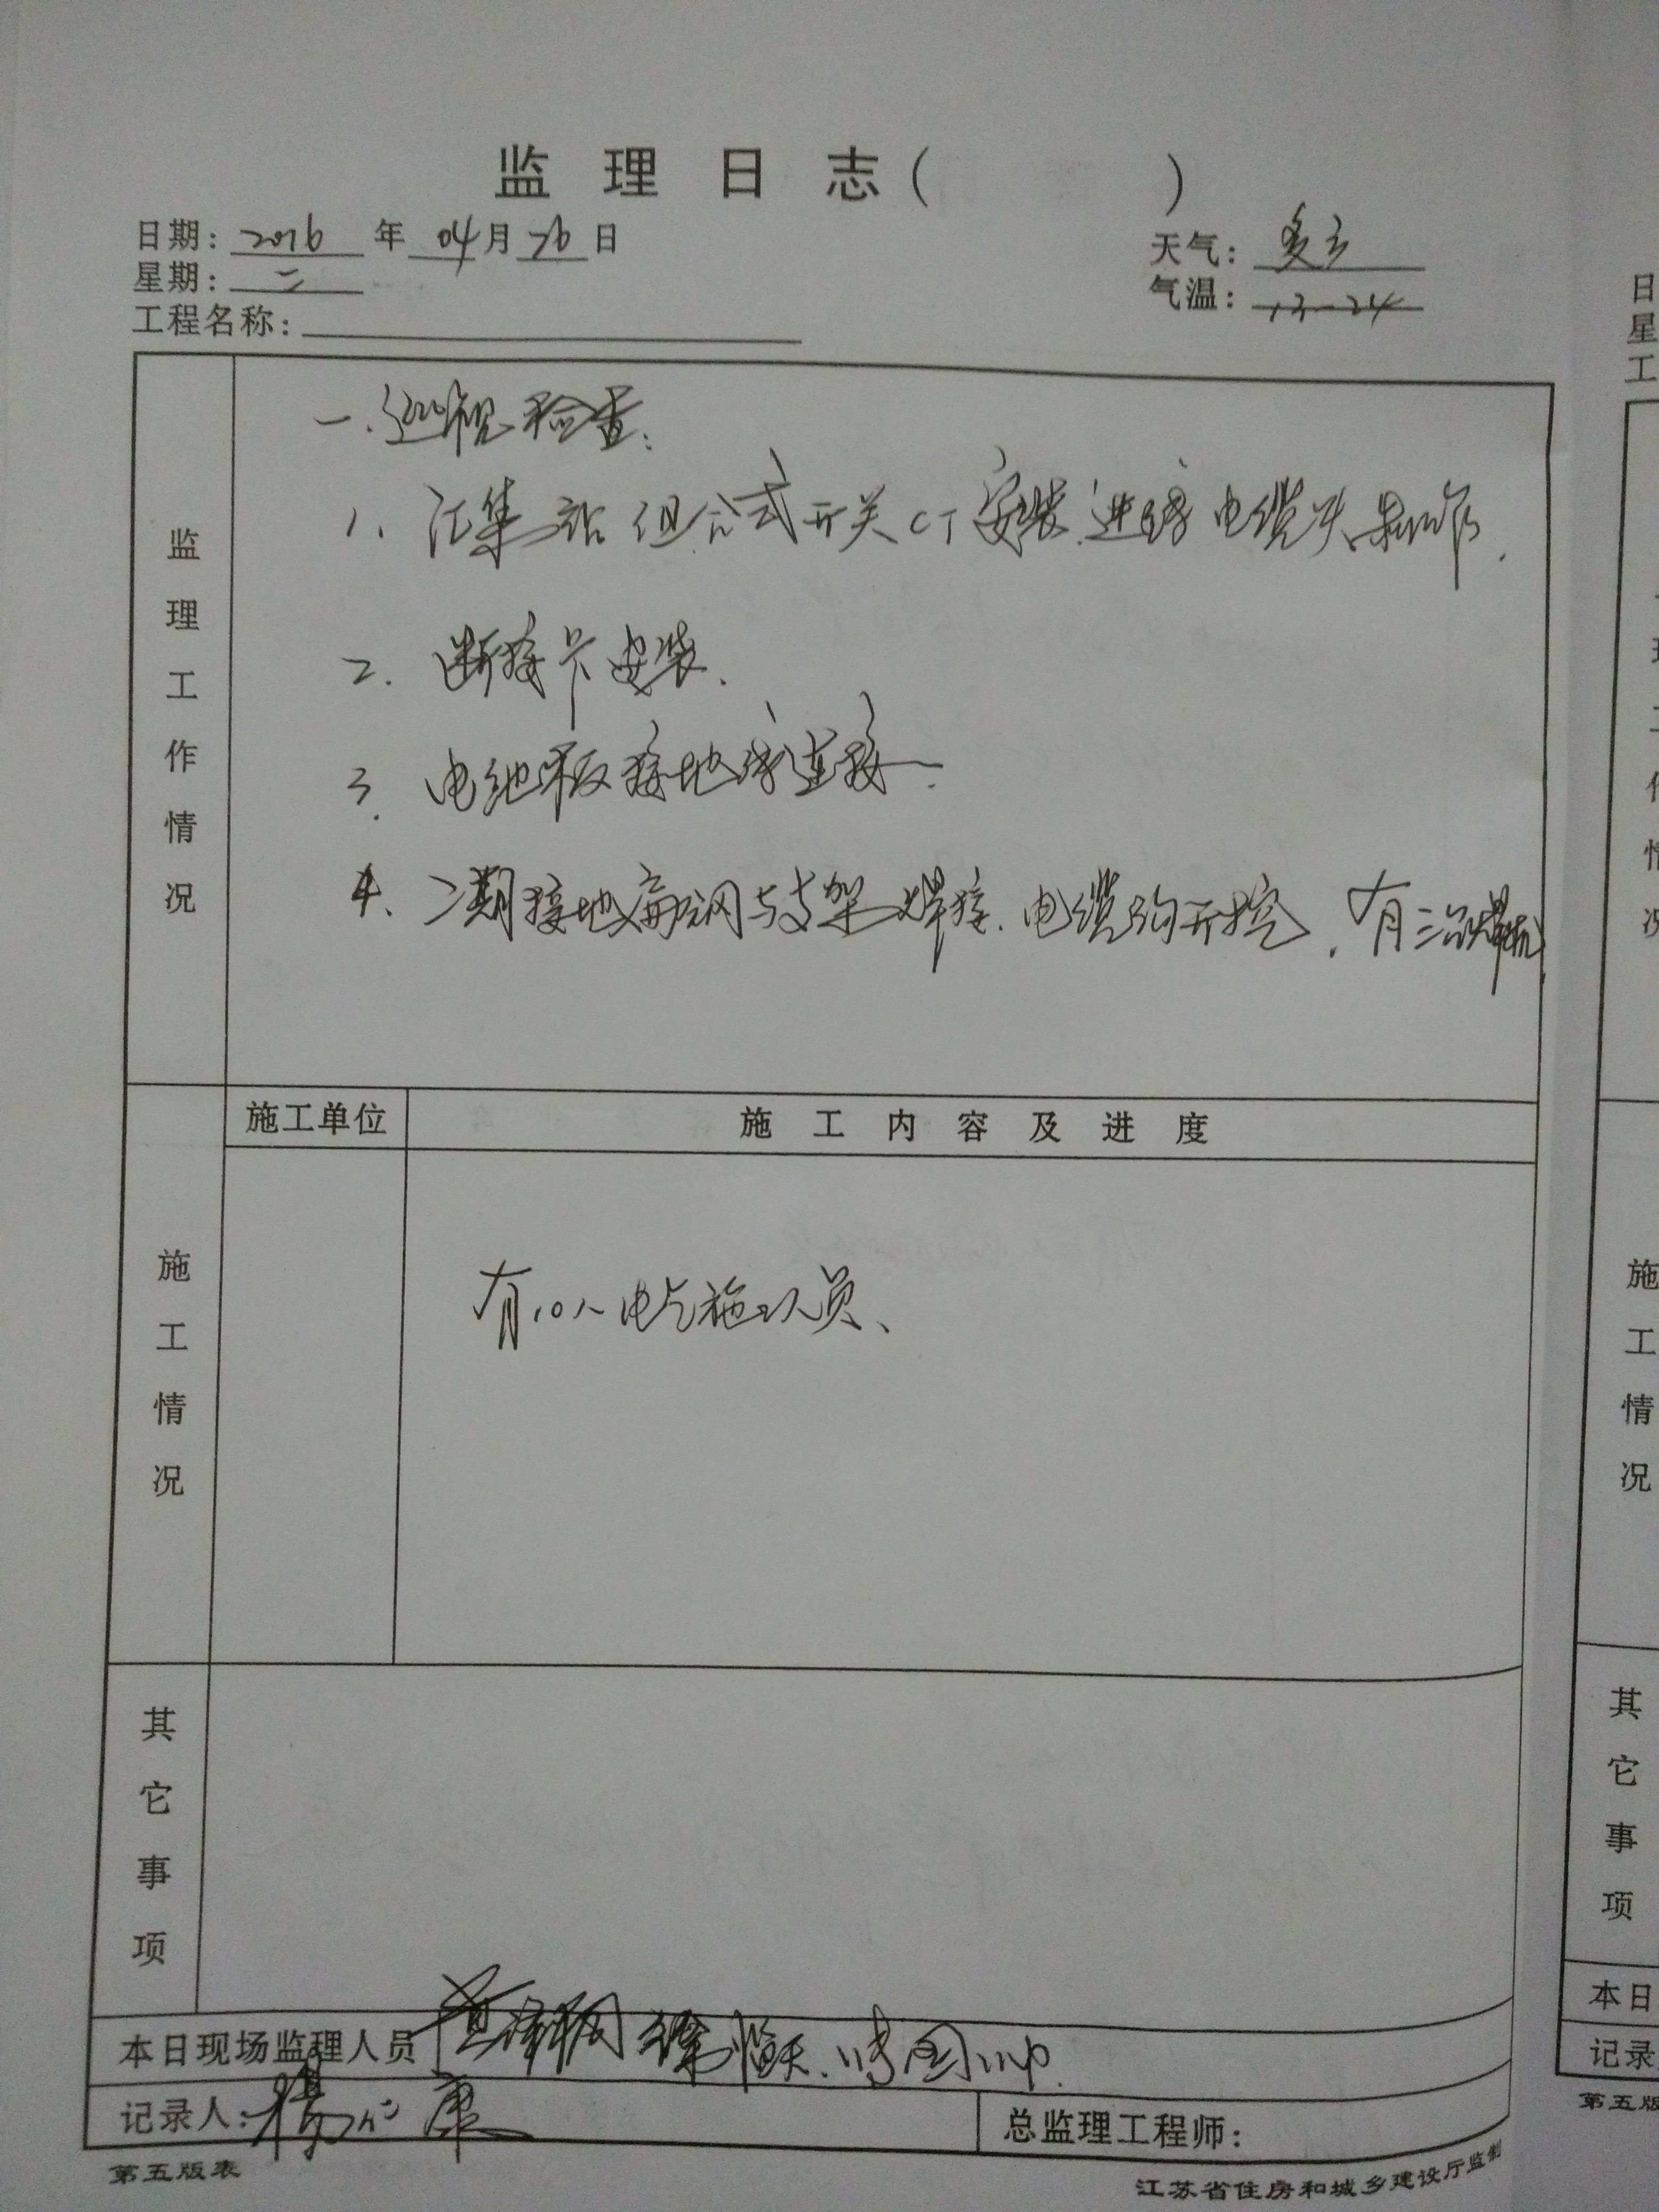 监理日志（ ）
日期：2016年04月26日
天气：多云
星期：二
气温：13-24
工程名称：
监理工作情况
一.巡视检查：
1、汇集站组合式开关CT安装.进线电缆头制作.
2.断接卡安装.
3.电池板接地线连接.
4、二期接地扁钢与支架焊接.电缆沟开挖.有三台焊机.
施工单位
施工内容及进度
施工情况
有10人电气施工人员、
其它事项
本日现场监理人员
记录人：杨仁康
总监理工程师：
第五版表
江苏省住房和城乡建设厅监制
日
星
工
施
工
情
况
其
它
事
项
本日
记录
第五版